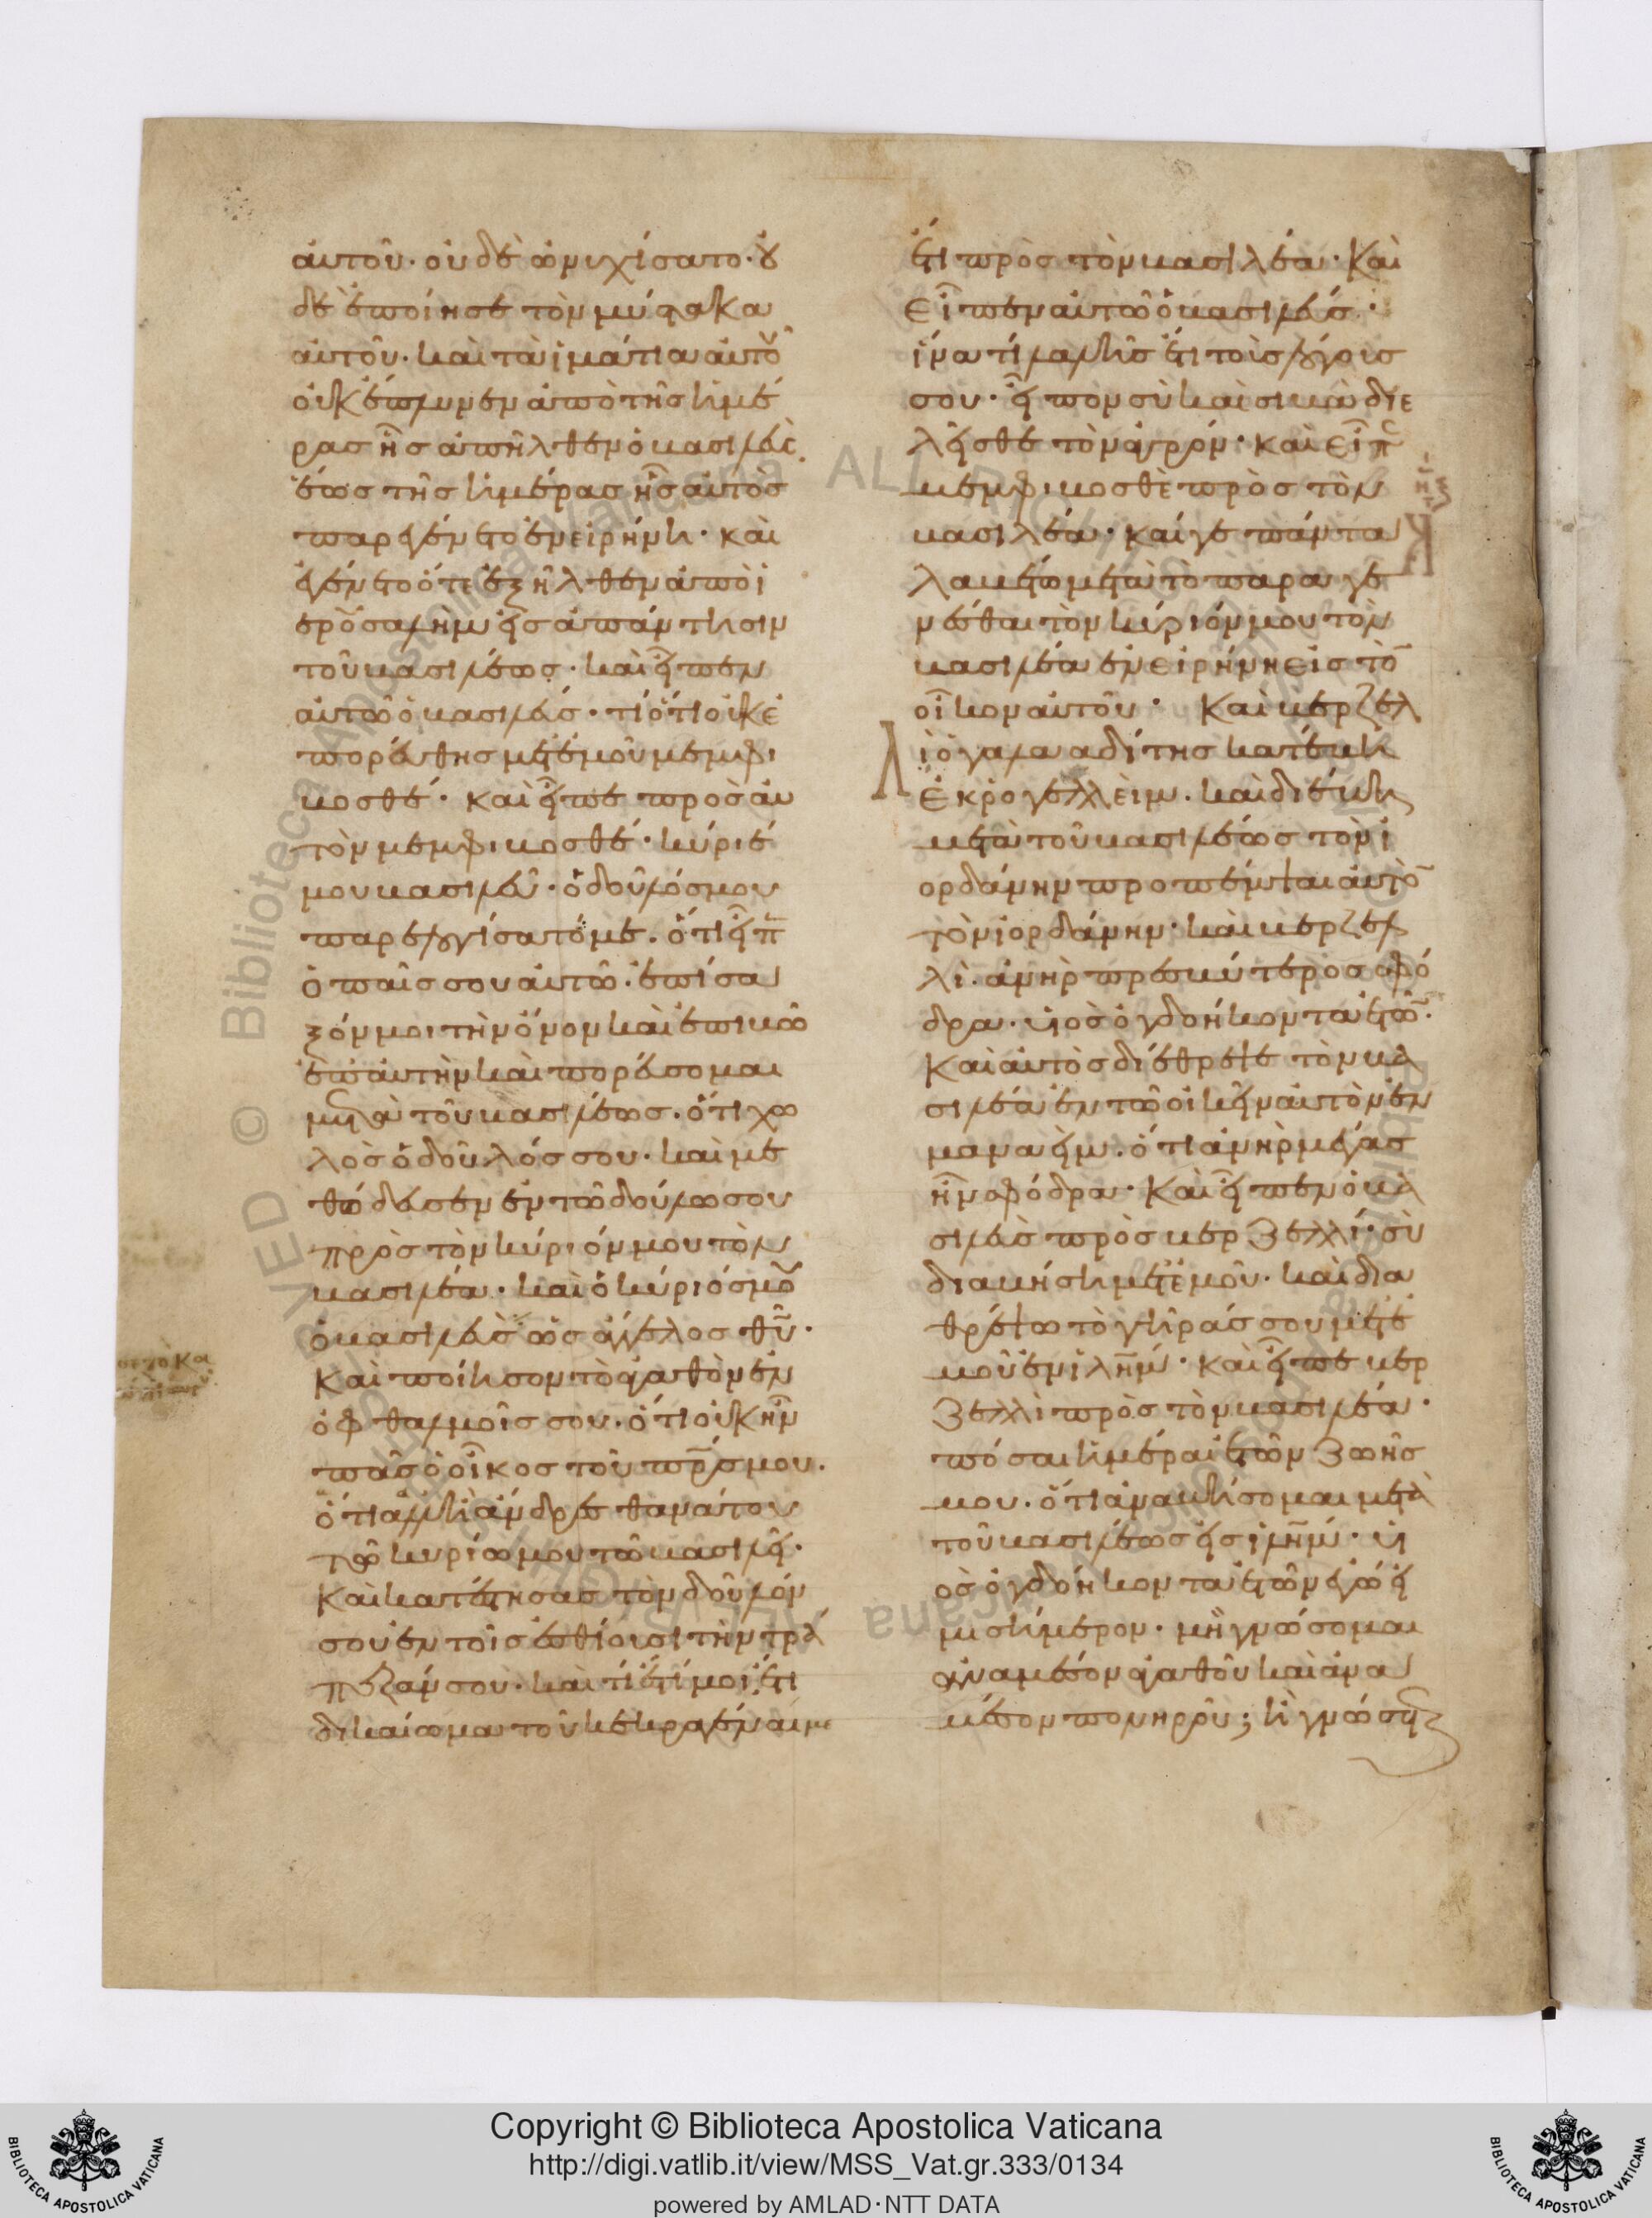 αὐτοῦ· οὐδὲ ὠνυχίσατο· οὐ
δὲ ἐποίησε τὸν μύστακα
αὐτοῦ· καὶ τὰ ἱμάτια αὐτοῦ
οὐκ ἔπλυνεν ἀπὸ τῆς ἡμέ
ρας ἧς ἀπῆλθεν ὁ βασιλεὺς
ἕως τῆς ἡμέρας ἧς αὐτὸς
παρεγένετο ἐν εἰρήνη· καὶ
ἐγένετο ὅτε ἐξῆλθεν ἀπὸ ἱ
ερουσαλὴμ εἰς ἀπάντησιν
τοῦ βασιλέως· καὶ εἶπεν
αὐτῶ ὁ βασιλεύς· τί ὅτι οὐκ ἐ
πορεύθης μετ' ἐμοῦ μεμφι
βοσθέ· καὶ εἶπε προς αὐ
τὸν μεμφιβοσθέ· κύριέ
μου βασιλεῦ· ὁ δοῦλός μου
παρελογίσατό με· ὅτι εἶπ
ὁ παῖς σου αὐτῶ· ἐπίσα
ξόν μοι τὴν ὄνον καὶ ἐπιβῶ
ἐπ' αὐτὴν καὶ πορεύσομαι
μετὰ τοῦ βασιλέως· ὅτι χω
λὸς ὁ δοῦλός σου· καὶ με
θώδευσεν ἐν τῶ δούλω σου
πρὸς τὸν κύριόν μου τὸν
βασιλέα· καὶ ὁ κύριός μου
ὁ βασιλεὺς ὡς ἄγγελος θῦ·
καὶ ποίησον τὸ ἀγαθὸν ἐν
ὀφθαλμοῖς σου· ὅτι οὐκ ἦν
πᾶς ὁ οἶκος τοῦ πρς μου·
ὅτι ἀλλ' ἢ ἄνδρες θανάτου
τῶ κυρίω μου τῶ βασιλεῖ·
καὶ κατέστησας τὸν δοῦλόν
σου ἐν τοῖς ἐσθίουσι τὴν τρά
πεζάν σου· καὶ τί ἐστί μοι ἔτι
δικαίωμα τοῦ κεκραγέναι με
ἔτι πρὸς τὸν βασιλέα· καὶ
εἶπεν αὐτῶ ὁ βασιλεύς·
ἱνατί λαλεῖς ἔτι τοὺς λόγους
σου· εἶπον σὺ καὶ σιβὰ διε
λεῖσθε τὸν ἀγρόν· καὶ εἶπ
μεμφιβοσθὲ πρὸς τὸν
βασιλέα· καί γε πάντα
λαβέτω μετὰ τὸ παραγε
νέσθαι τὸν κύριόν μου τὸν
βασιλέα ἐν εἰρήνη εἰς τὸ
οἶκον αὐτοῦ· καὶ βερζελ
λὶ ὁ γαλααδίτης κατέβη
ἐκ ρογελλεὶμ· καὶ διέβη
μετὰ τοῦ βασιλέως τὸν ἰ
ορδάνην προπέμψαι αὐτὸ
τὸν ἰορδάνην· καὶ βερζελ
λὶ· ἀνὴρ πρεσβύτερος σφό
δρα· υἱὸς ὀγδοήκοντα ἐτῶ·
καὶ αὐτὸς διέθρεψε τὸν βα
σιλέα ἐν τῶ οἰκεῖν αὐτὸν ἐν
μαναείμ· ὅτι ἀνὴρ μέγας
ἦν σφόδρα· καὶ εἶπεν ὁ βα
σιλεὺς πρὸς βερζελλί· σὺ
διαβήση μετ' ἐμοῦ· καὶ δια
θρέψω τὸ γῆράς σου μετ' ἐ
μοῦ ἐν ἱλημ· καὶ εἶπε βερ
ζελλὶ πρὸς τὸν βασιλέα·
πόσαι ἡμέραι ἐτῶν ζωῆς
μου· ὅτι ἀναβήσομαι μετὰ
τοῦ βασιλέως εἰς ἱλημ· υἱ
ὸς ὀγδοήκοντα ἐτῶν ἐγώ εἰ
μι σήμερον· μὴ γνώσομαι
ἀναμέσον ἀγαθοῦ καὶ ἀνα
μέσον πονηροῦ; ἢ γνώσεται